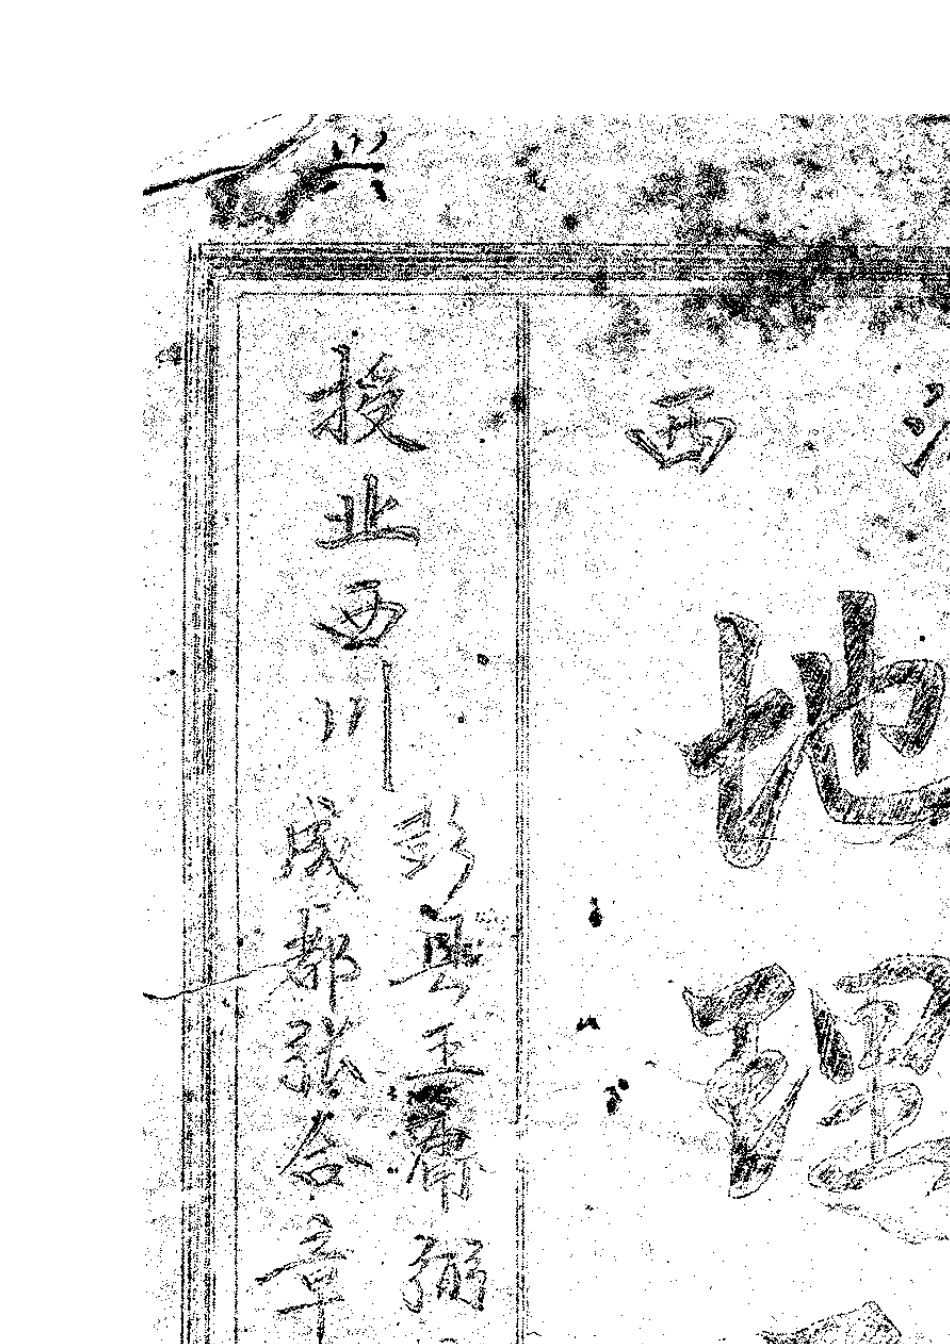 西
地理
授业西川
彭县王弼
成都张含章